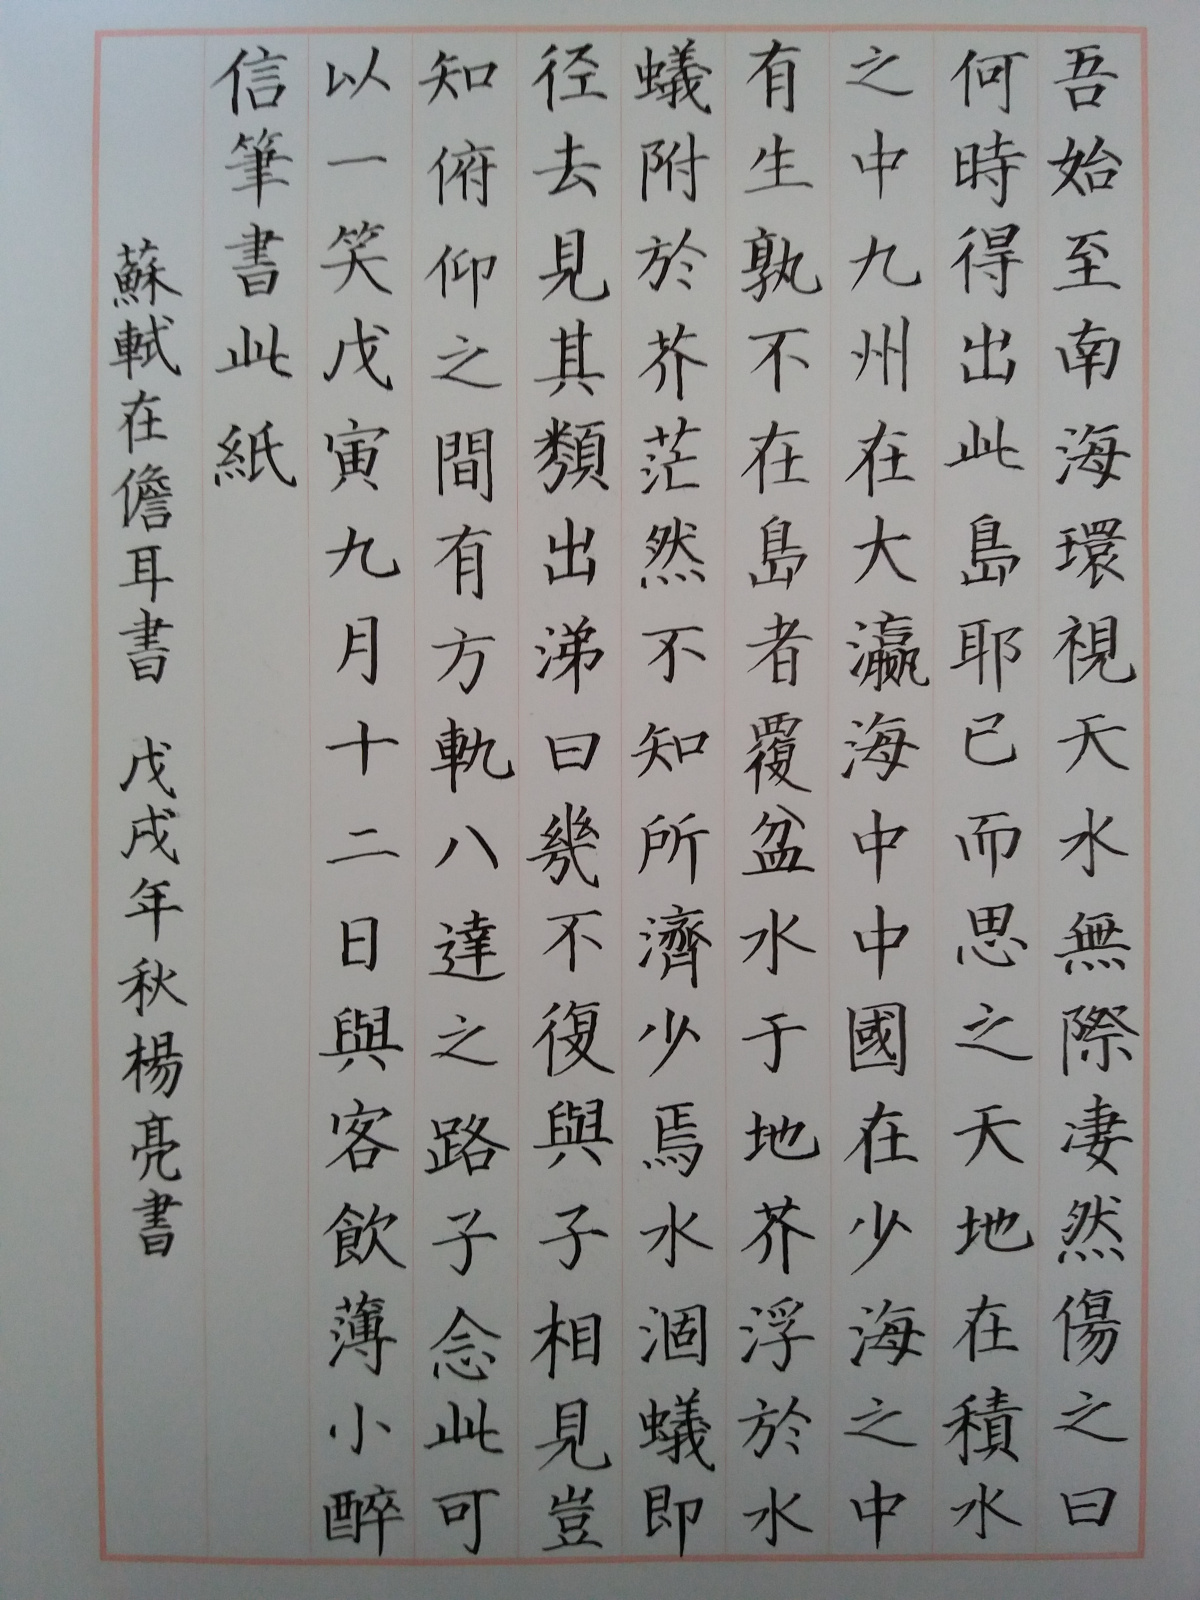 吾始至南海環視天水無際凄然傷之曰
何時得出此島耶已而思之天地在積水
之中九州在大瀛海中中國在少海之中
有生孰不在島者覆盆水于地芥浮於水
蟻附於芥茫然不知所濟少焉水涸蟻即
径去見其類出涕曰幾不復與子相見豈
知俯仰之間有方軌八達之路子念此可
以一笑戊寅九月十二日與客飲薄小醉
信筆書此紙
蘇軾在儋耳書 戊戌年秋楊亮書